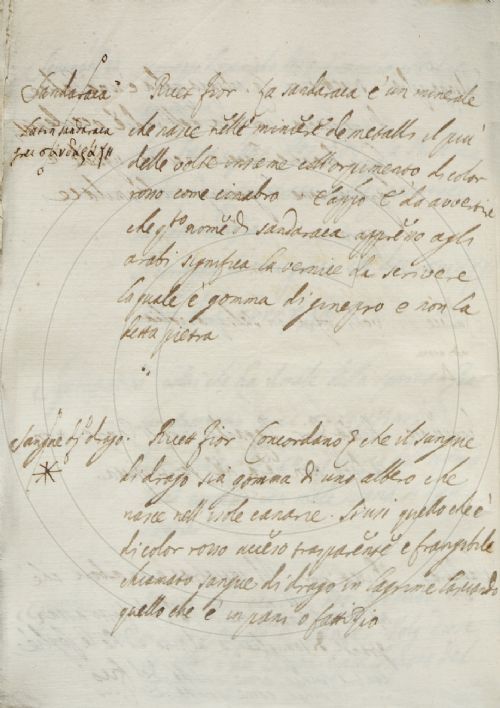 Sandaraca
Ricet fior. La sandaraca è un minerale
che nasce nelle miniere de metalli il più
delle volte insieme coll'orpimento di color
rosso come cinabro
che qto nome di sandaraca appresso agli
arabi significa la vernice da scrivere
la quale è gomma di ginepro e non la
detta pietra
sangue di drago.
Ricet fior Concordano che il sangue
di drago sia gomma di uno albero che
nasce nell'isole canarie. Si usi quello che è
di color rosso acceso trasparente e frangibile
chiamato sangue di drago in lagrime lasciando
quello che è in pani o